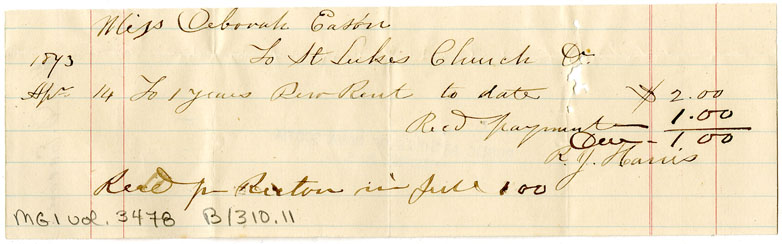 Miss Deborah Eason
To St Lukes Church Dr.
1873
Apr 14 To 1 years Pew Rent to date $2.00
Recd payment 1.00
Due - 1.00
R. J. Harris
Recd pr in full 1 00
MG.1 vol. 3478 B/310.11